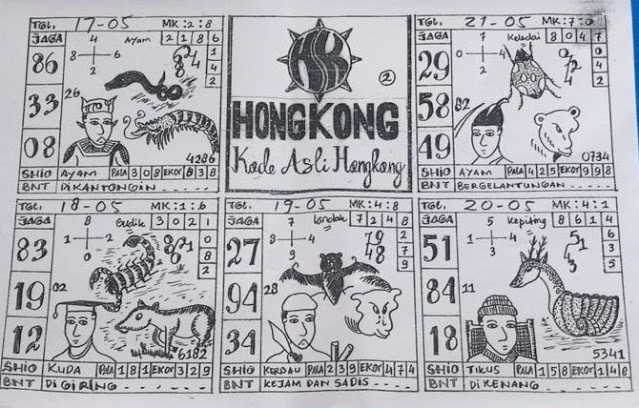 TGL. 17-05 MK:2:8
JAGA 4 Ayam 2 1 8 6
8 6 2
1
4
2
86
33
08
26
4286
SHIO AYAM PALA 3 0 8 EKOR 8 3 8
BNT DIKANTONGIN . . . . .
HK
2
HONGKONG
Kode Asli Hongkong
TGL. 21-05 MK:7:0
JAGA 7 Keledai 8 0 4 7
0 4 2
0
4
2
29
58
49
02
0734
SHIO AYAM PALA 4 2 5 EKOR 9 9 8
BNT BERGELANTUNGAN . . . . .
TGL. 18-05 MK:1:6
JAGA 8 3 0 2 1
1 0 2
0
8
2
83
19
12
02
6182
SHIO KUDA PALA 1 8 1 EKOR 3 2 9
BNT DIGIRING . . . . .
TGL. 19-05 MK:4:8
JAGA 7 7 2 4 8
8 4 9
79
48
2
7
9
27
94
34
28
SHIO KERBAU PALA 2 3 9 EKOR 4 7 4
BNT KEJAM DAN SADIS . . . .
TGL. 20-05 MK:4:1
JAGA 5 Kepiting 8 6 1 4
1 4 3
51
6
3
5
51
84
18
11
5341
SHIO TIKUS PALA 1 5 8 EKOR 1 4 8
BNT DIKENANG . . . . .